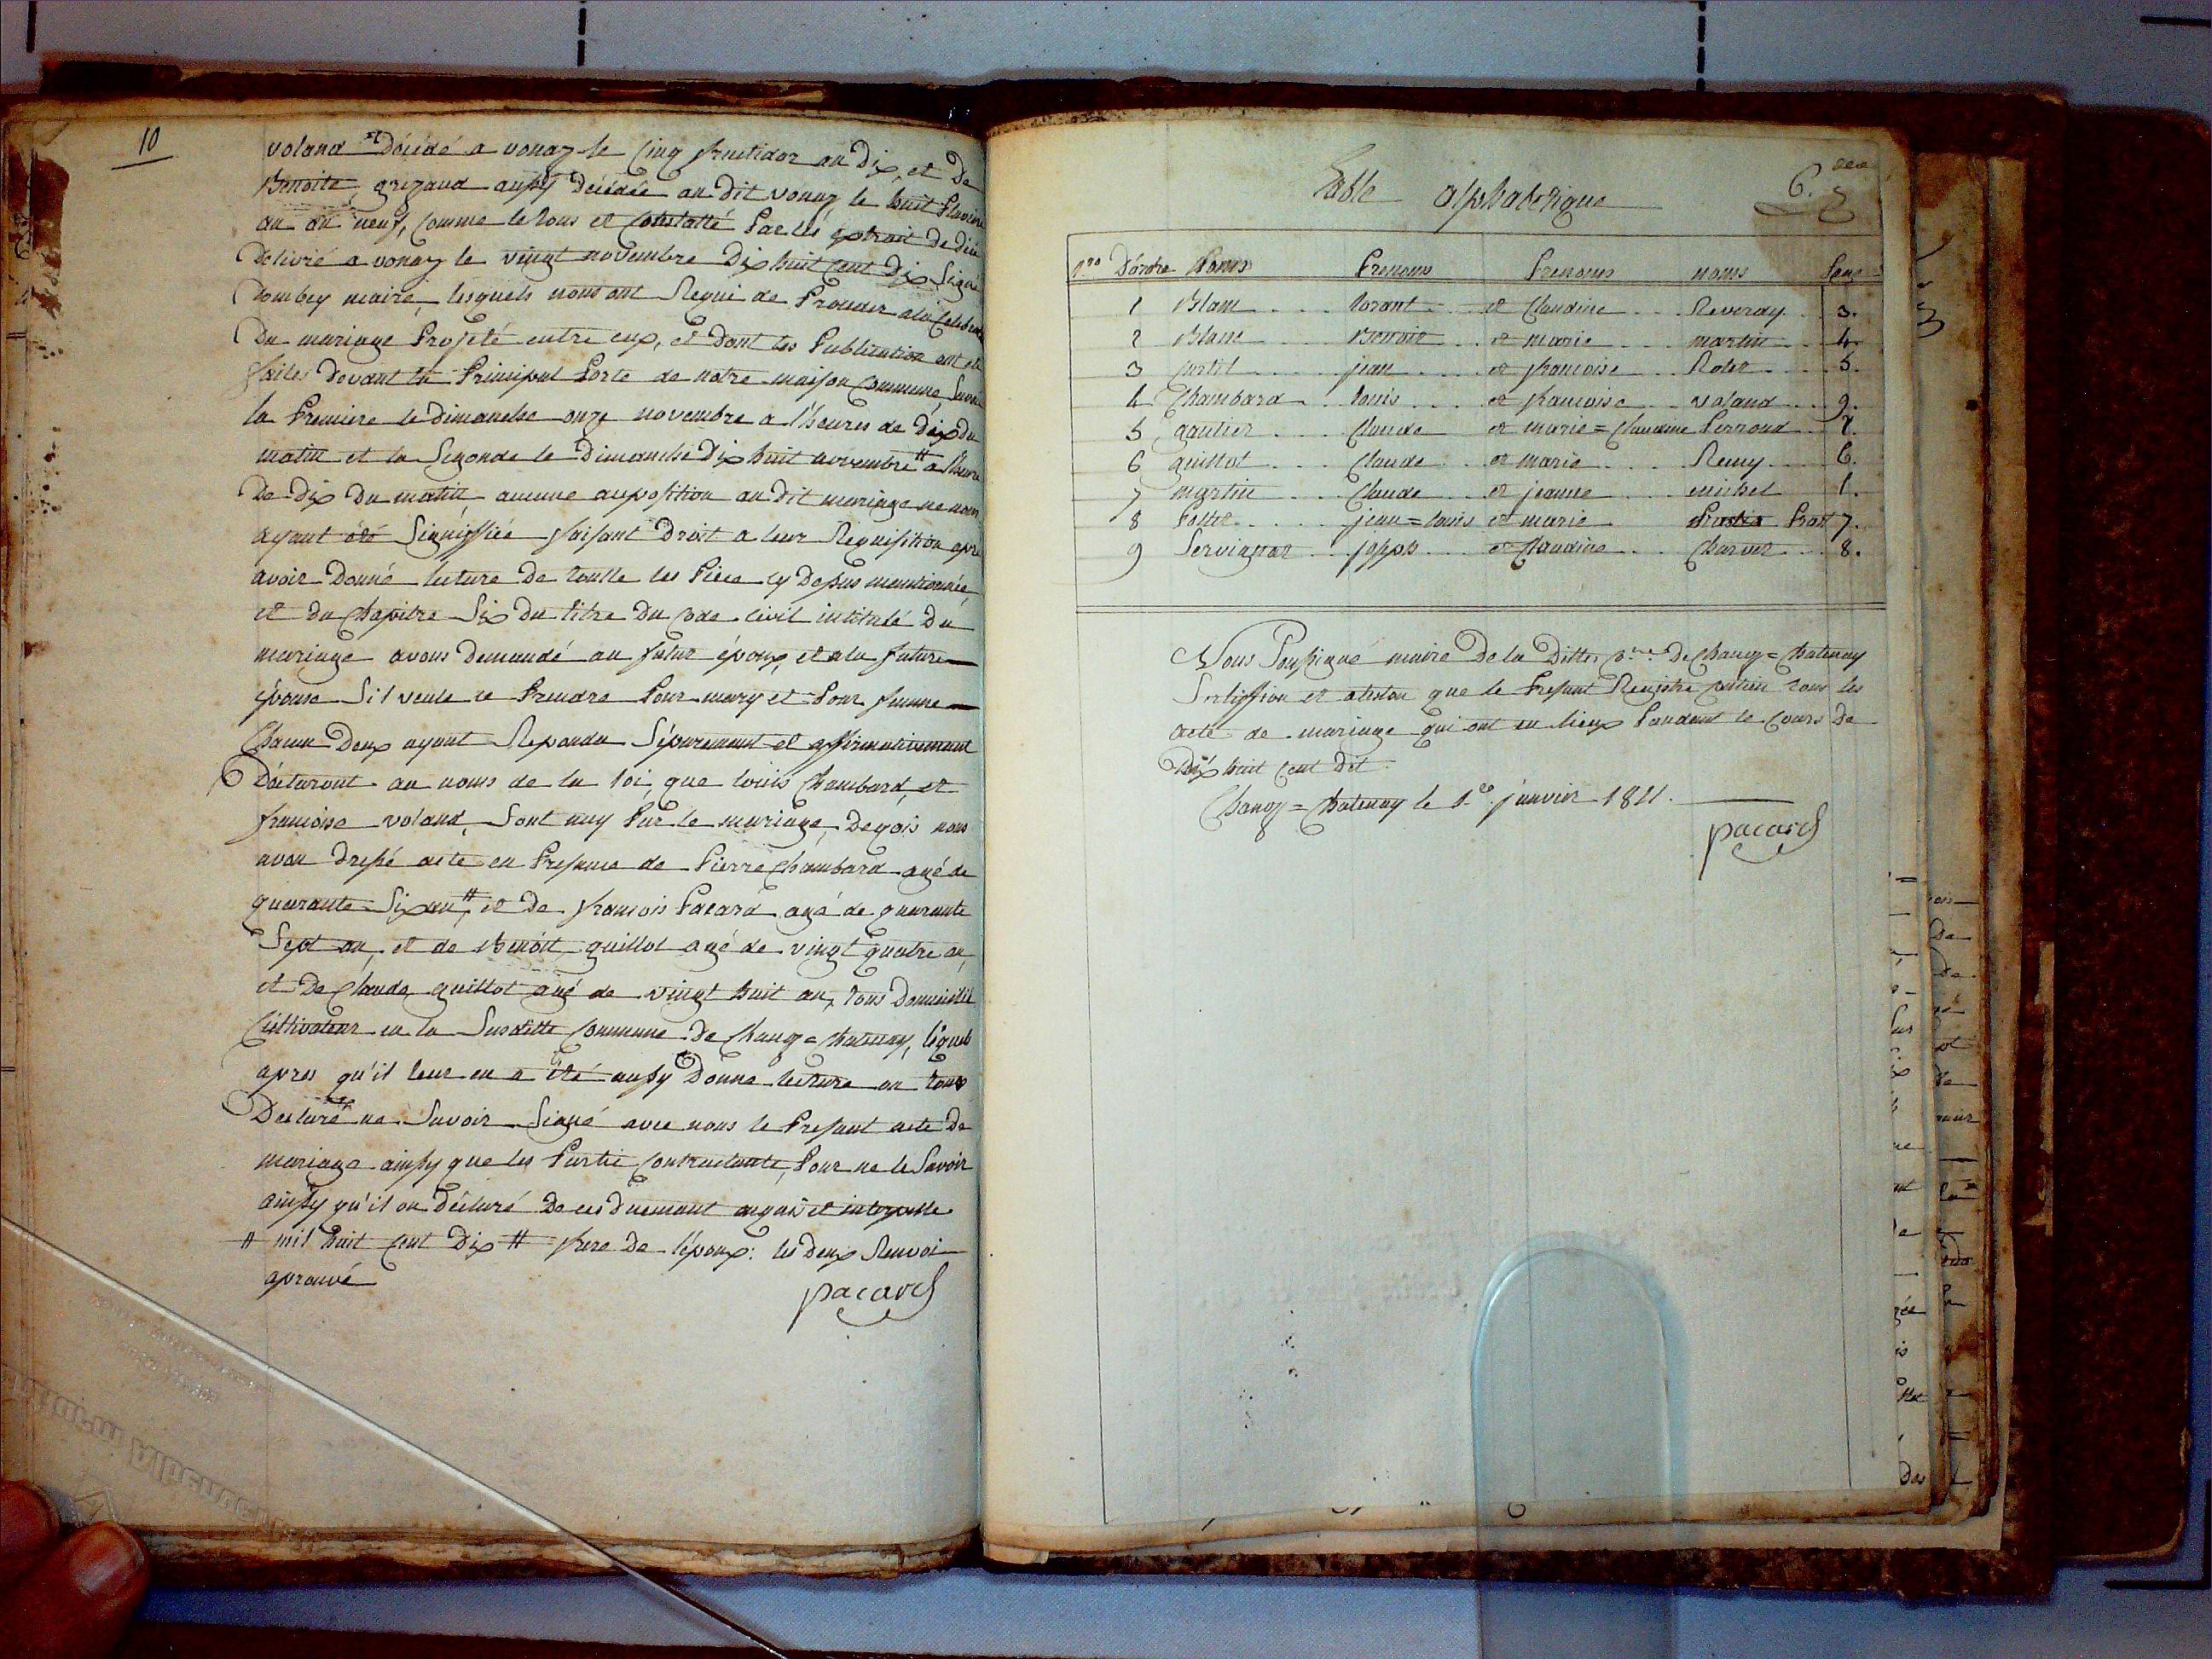 10
voland Décédé a vonay le Cinq fructidor an Dix, et De
Benoite grizaud aussy Décédée au dit vonay le huit
an neuf, Comme le tous et Constatté Par les extrait de
Delivré a vonay le vingt novembre Dix huit Cent Dix Signé
Dombey maire, lesquels nous ont Requi de Proceder a la
Du mariage Projeté entre eux, et Dont les Publication ont
faites Devant la Principal Porte de notre maison Commune,
la Premiere le Dimanche onze novembre a l'heures de Dix Du
matin et la Segonde le Dimanche Dix huit novembre # a
De Dix Du matin aucune auposition au Dit mariage ne nous
ayant été Signiffiée faisant Droit a leur Requisition
avoir Donné lecture De toutte les Pièce cy Dessus mentionnée,
et Du Chapitre Six Du titre Du Code civil intitulé Du
mariage avons Demandé au futur époux, et a la future
épouse Si'l veule ce Prendre Pour mary et Pour femme
Chacun Deux ayant Repondu Séparement et affirmativement
Déclaront au noms de la loi, que louis Chambard, et
francoise voland, Sont uny Par le mariage, De qois nous
avon Dressé acte en Presance de Pierre Chambard agé de
quarante Six an, # et De francois Pacard agé de quarante
Sept an, et de Benoit guillot agé de vingt quatre an,
et De Claude guillot agé de vingt huit an, tous Domicilié
Cultivateur en la Susditte Commune De Changy = Chatenay,
apres qu'il leur en a été aussy Donne lecture on tous
Declaré ne Savoir Signé avec nous le Presant acte De
mariage ainsy que les Partie Contractante, Pour ne le Savoir
ainsy qu'il on Déclaré De ces Duement
# mil huit Cent Dix # frere De l'époux: les Deux Renvoi
aprouvé
pacard
Table alphabetique
6.
D'ordre Noms Prenoms Prenoms noms
1 Blanc lorant et Claudine Reverdy 3.
2 Blanc Benoit et marie martin 4.
3 jean et francoise Rolet 5.
4 Chambard louis et francoise voland 9.
5 gautier Claude et marie = Claudine Perroud
6 guillot Claude et marie Remy 6.
7 martin Claude et jeanne michel 1.
8 jean = louis et marie Prost 7.
9 et Claudine Charvet 8.
Nous Soussigné maire De la Ditte De Changy = Chatenay
Sertiffion et atteston que le Presant Registre contien tous les
acte de mariage qui ont eu lieux Pandant le Cours De
Dix huit Cent Dit
Changy = Chatenay le 1er janvier 1811.
pacard